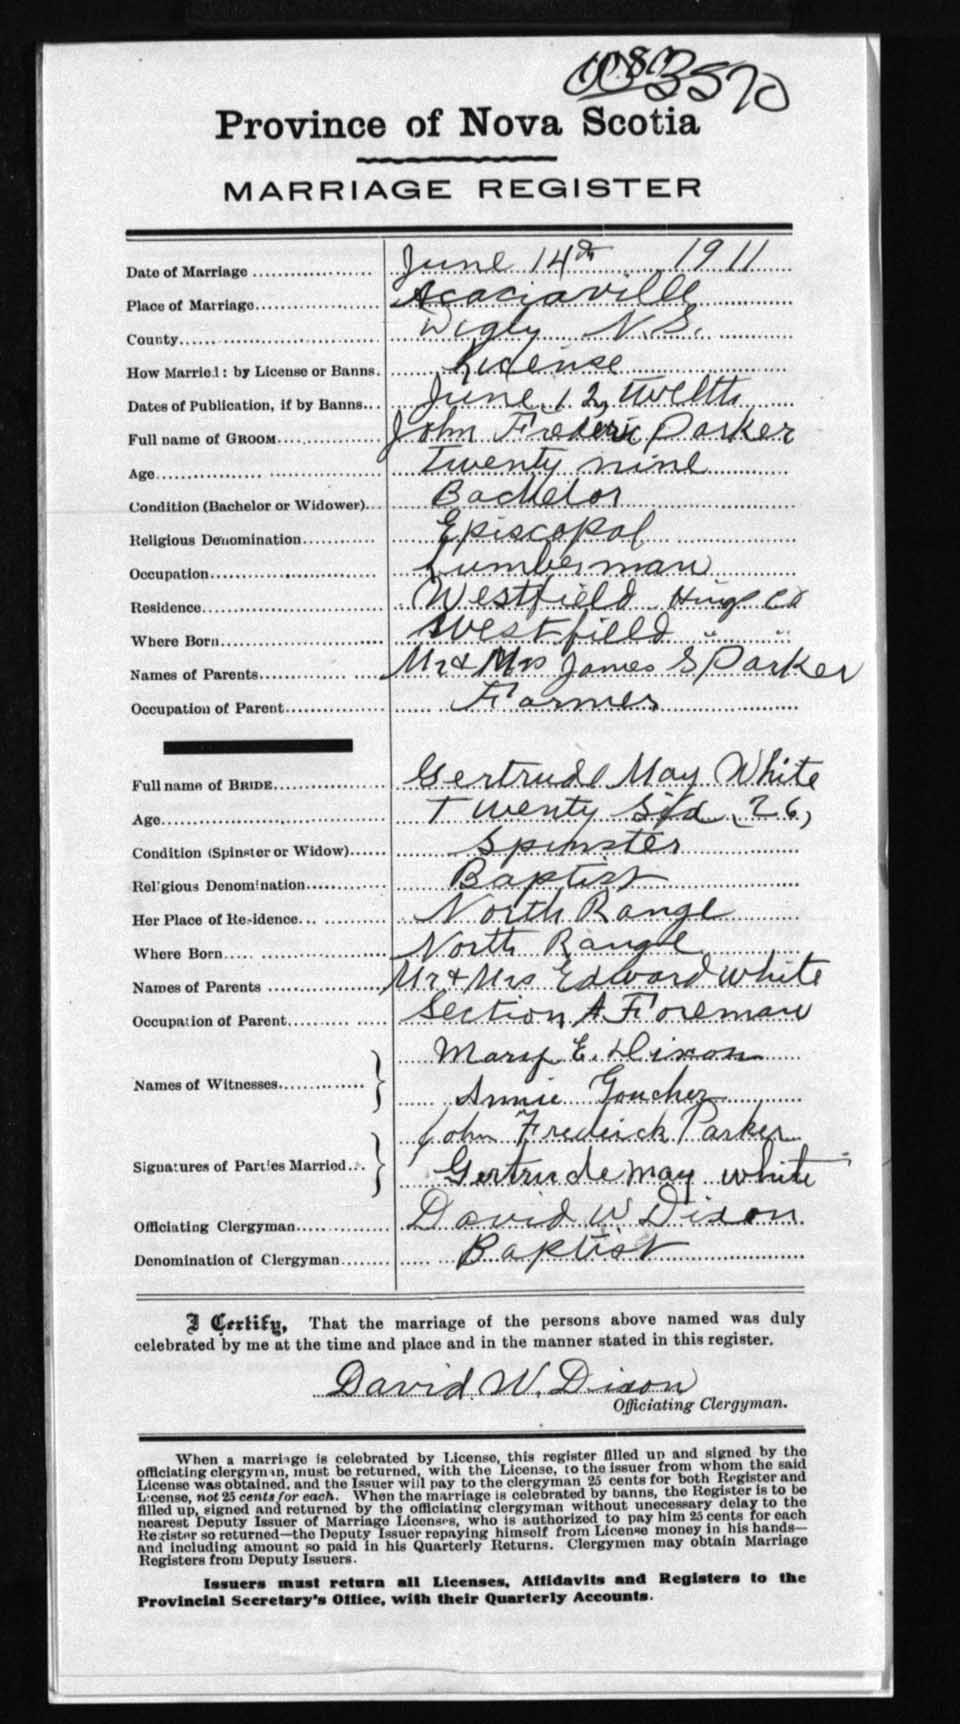 3570
Province of Nova Scotia
MARRIAGE REGISTER
Date of Marriage June 14th 1911
Place of Marriage Acaciaville
County Digby N.S.
How Married: by License or Banns. License
Dates of Publication, if by Banns June 12, twelth
Full name of GROOM John Frederic Parker
Age twenty nine
Condition (Bachelor or Widower) Bachelor
Religious Denomination Episcopal
Occupation Lumberman
Residence Westfield Kings Co
Where Born Westfield " "
Names of Parents Mr & Mrs James S Parker
Occupation of Parent Farmer
Full name of BRIDE Gertrude May White
Age Twenty Six (26)
Condition (Spinster or Widow) Spinster
Religious Denomination Baptist
Her Place of Residence North Range
Where Born North Range
Names of Parents Mr & Mrs Edward White
Occupation of Parent Section Foreman
Names of Witnesses Mary E. Dixon
Annie Goucher
Signatures of Parties Married John Frederick Parker
Gertrude May White
Officiating Clergyman David W Dixon
Denomination of Clergyman Baptist
I Certify, That the marriage of the persons above named was duly
celebrated by me at the time and place and in the manner stated in this register.
David W. Dixon
Officiating Clergyman.
When a marriage is celebrated by License, this register filled up and signed by the
officiating clergyman, must be returned, with the License, to the issuer from whom the said
License was obtained, and the Issuer will pay to the clergyman 25 cents for both Register and
License, not 25 cents for each. When the marriage is celebrated by banns, the Register is to be
filled up, signed and returned by the officiating clergyman without unecessary delay to the
nearest Deputy Issuer of Marriage Licenses, who is authorized to pay him 25 cents for each
Register so returned—the Deputy Issuer repaying himself from License money in his hands—
and including amount so paid in his Quarterly Returns. Clergymen may obtain Marriage
Registers from Deputy Issuers.
Issuers must return all Licenses, Affidavits and Registers to the
Provincial Secretary's Office, with their Quarterly Accounts.